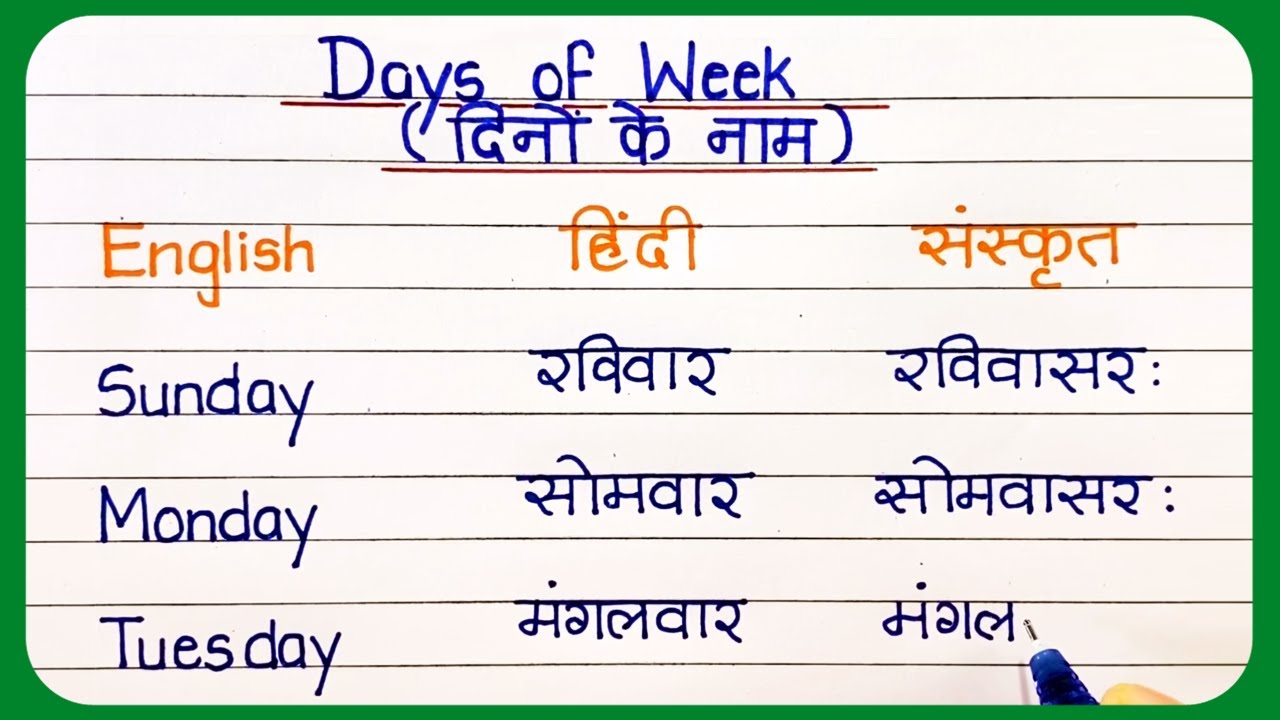 Days of Week
(दिनों के नाम)
English हिंदी संस्कृत
Sunday रविवार रविवासरः
Monday सोमवार सोमवासरः
Tuesday मंगलवार मंगल